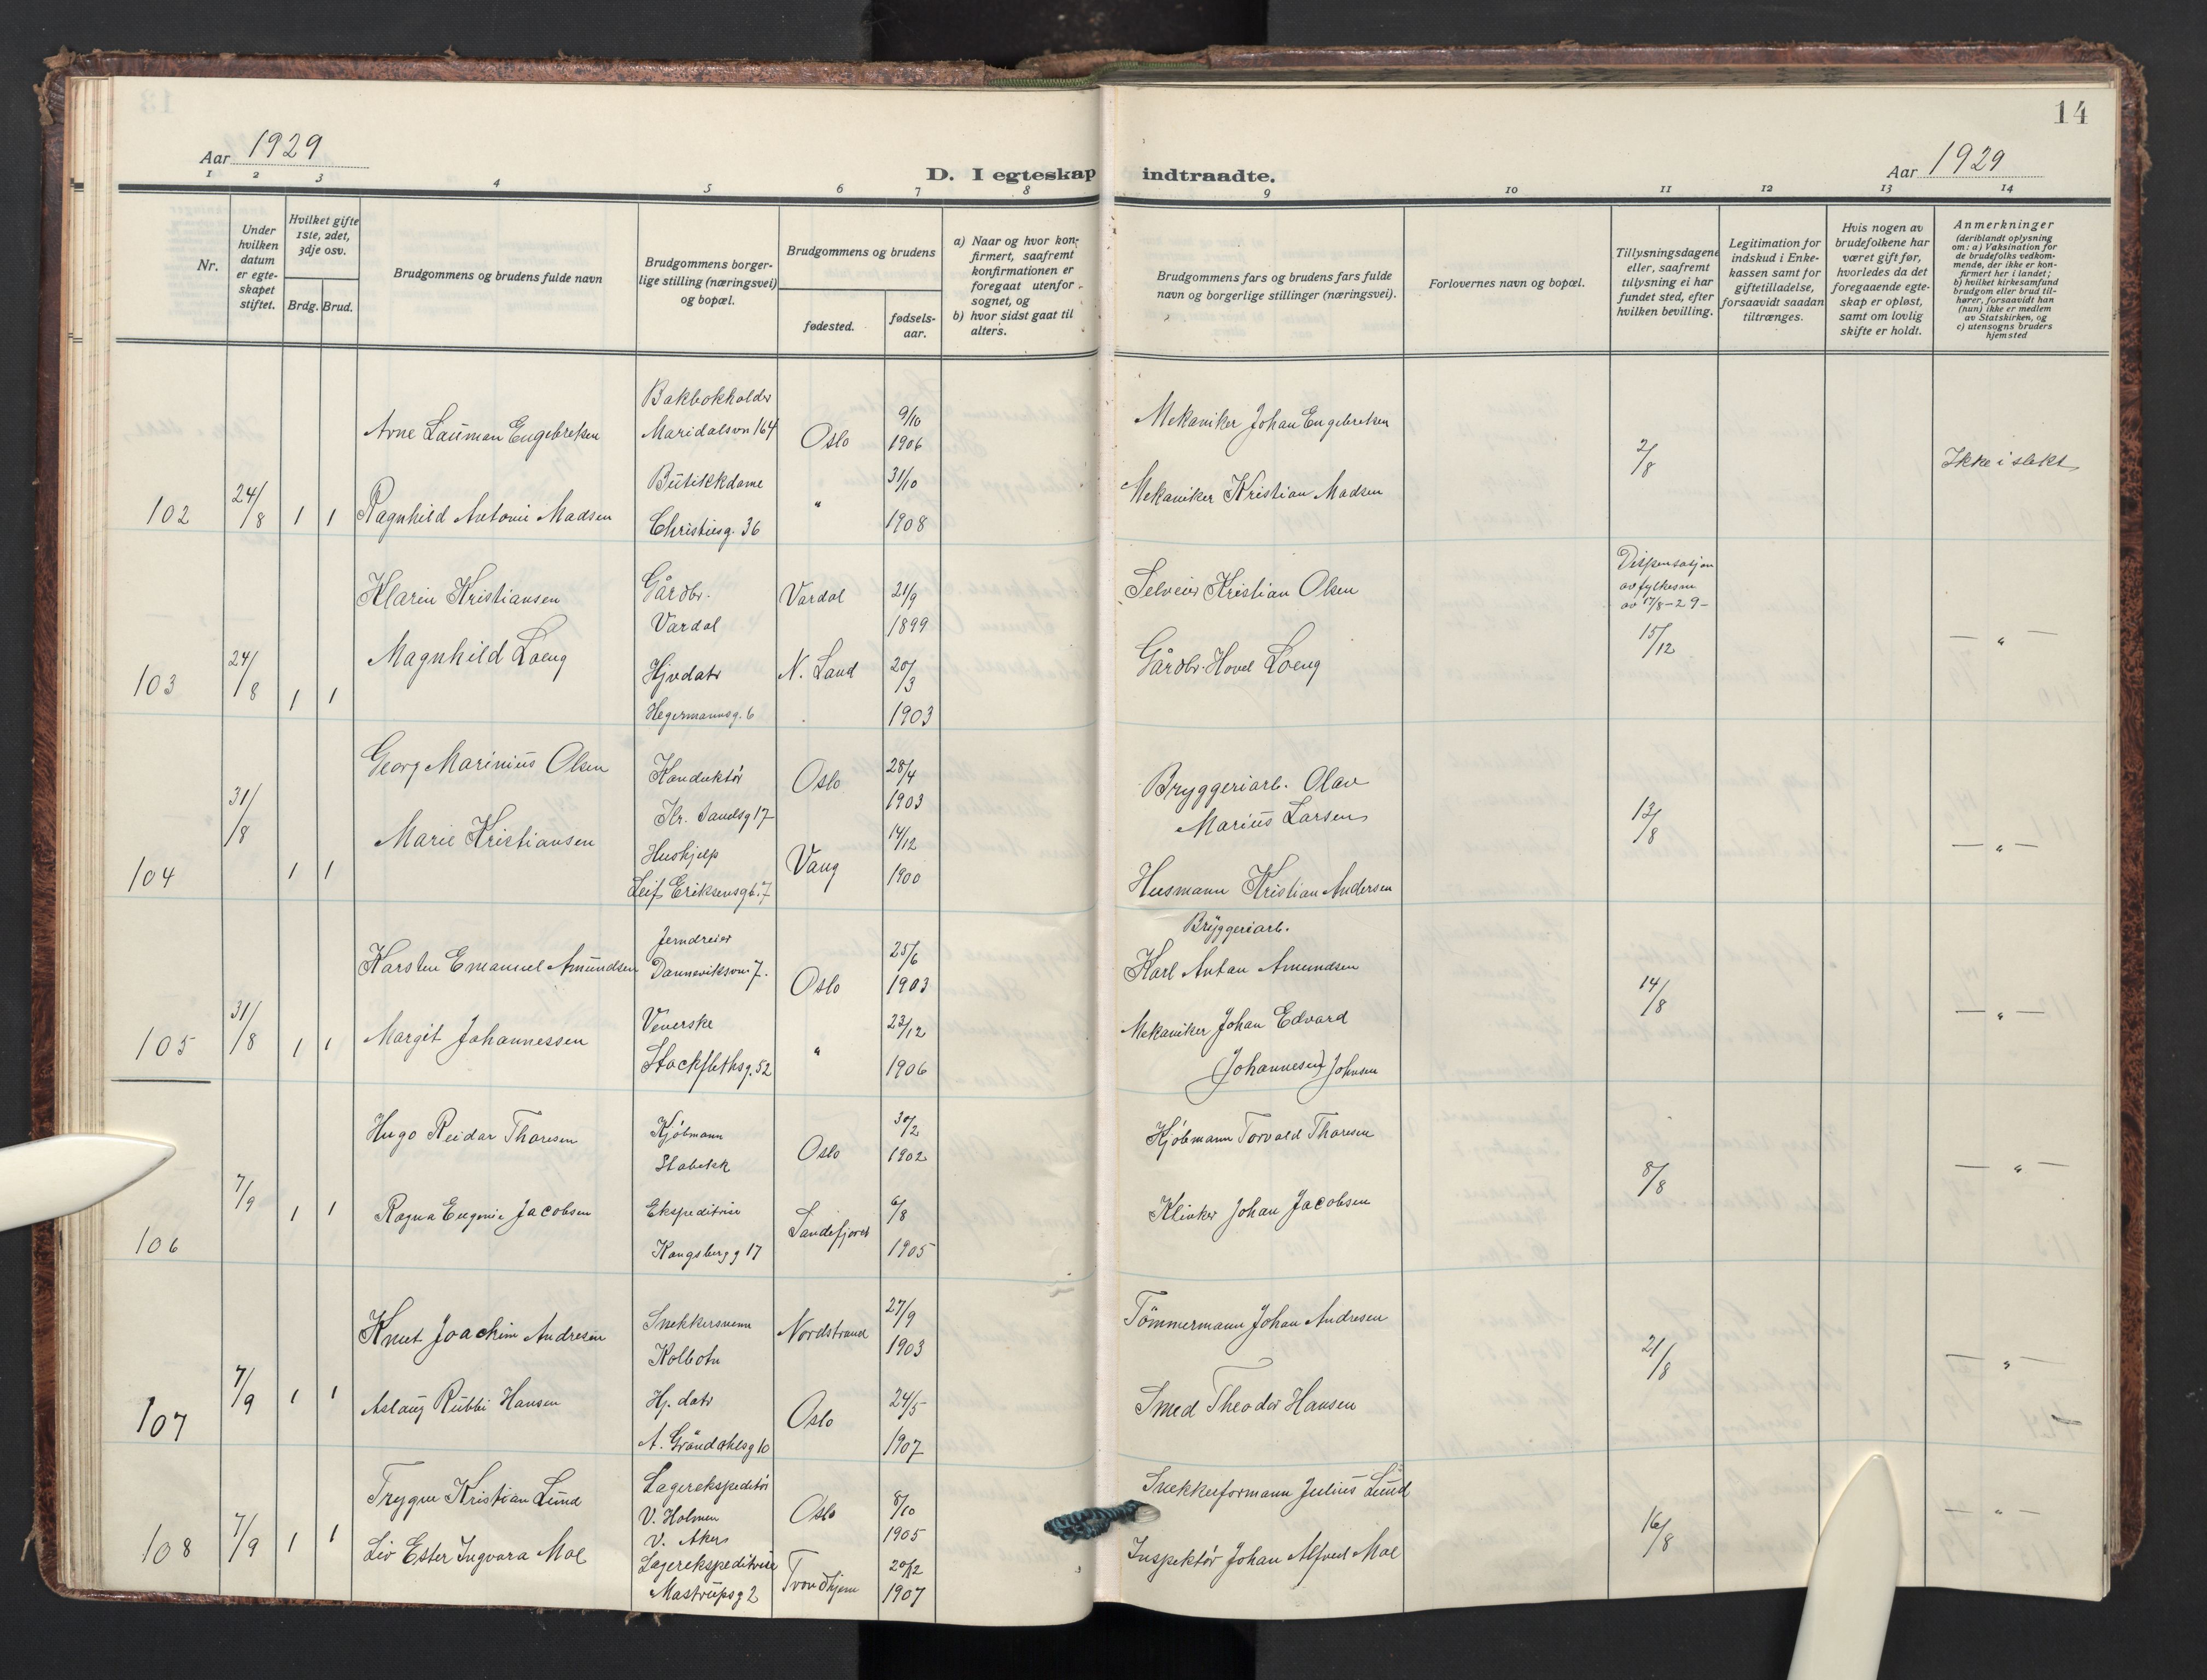 13
14
Aar 1929
Aar 1929
D. I egteskap indtraadte.
1 2 3 4 5 6 7 8 9 10 11 12 13 14
Nr.
Under hvilken datum er egte-skapet stiftet.
Hvilket gifte 1ste, 2det, 3dje osv.
Brdg. Brud.
Brudgommens og brudens fulde navn
Brudgommens borger-
lige stilling (næringsvei)
og bopæl.
Brudgommens og brudens
fødested.
fødsels-
aar.
a) Naar og hvor kon-
firmert, saafremt
konfirmationen er
foregaat utenfor
sognet, og
b) hvor sidst gaat til
alters.
Brudgommens fars og brudens fars fulde
navn og borgerlige stillinger (næringsvei).
Forlovernes navn og bopæl.
Tillysningsdagene
eller, saafremt
tillysning ei har
fundet sted, efter
hvilken bevilling.
Legitimation for
indskud i Enke-
kassen samt for
giftetilladelse,
forsaavidt saadan
tiltrænges.
Hvis nogen av
brudefolkene har
været gift før,
hvorledes da det
foregaaende egte-
skap er opløst,
samt om lovlig
skifte er holdt.
Anmerkninger
(deriblandt oplysning
om: a) Vaksination for
de brudefolks vedkom-
mende, der ikke er kon-
firmert her i landet;
b) hvilket kirkesamfund
brudgom eller brud til-
hører, forsaavidt han
(hun) ikke er medlem
av Statskirken, og
c) utensogns bruders
hjemsted
Arne Lauman Engebretsen
Bakbokholder
Maridalsvn 164
Oslo
9/10
1906
Mekaniker Johan Engebretsen
2/8
Ikke i slekt
102 24/8 1 1
Ragnhild Antonie Madsen
Butikkdame
Christiesg. 36
"
31/10
1908
Mekaniker Kristian Madsen
Klarin Kristiansen
Gårdbr.
Vardal
Vardal
21/9
1899
Selveier Kristian Olsen
Dispensasjon
av fylkesm
av 17/8-29-
15/12
— " —
103 24/8 1 1
Magnhild Loeng
Hjvdatr
Hegermannsg. 6
N. Land
20/3
1903
Gårdbr. Hovel Loeng
Georg Marinius Olsen
Konduktør
Kr. Sandsg 17
Oslo
28/4
1903
Bryggeriarb. Olav
Marius Larsen
13/8
— " —
104 31/8 1 1
Marie Kristiansen
Hushjelp
Leif Eriksensg b. 7
Vang
14/12
1900
Husmann Kristian Andersen
Karsten Emanuel Amundsen
Jerndreier
Danneviksvn 7.
Oslo
25/6
1903
Bryggeriarb.
Karl Anton Amundsen
14/8
— " —
105 31/8 1 1
Margit Johannessen
Veverske
Stockflethsg. 52
"
23/12
1906
Mekaniker Johan Edvard
(Johannesen) Johnsen
Hugo Reidar Thoresen
Kjøbmann
Stabekk
Oslo
30/2
1902
Kjøbmann Torvald Thoresen
8/8
— " —
106 7/9 1 1
Ragna Eugenie Jacobsen
Ekspeditrise
Kongsberg g 17
Sandefjord
6/8
1905
Klinker Johan Jacobsen
Knut Joachim Andresen
Snekkersvenn
Kolbotn
Nordstrand
27/9
1903
Tömmermann Johan Andresen
21/8
— " —
107 7/9 1 1
Aslaug Rubbi Hansen
Hj. datr
A. Gröndahlsg 10
Oslo
24/5
1907
Smed Theodor Hansen
Trygve Kristian Lund
Lagerekspeditør
V. Holmen
V. Aker
Oslo
8/10
1905
Snekkerformann Julius Lund
16/8
— " —
108 7/9 1 1
Liv Ester Ingvara Moe
Lagerekspeditrise
Mastrupsg 2
Trondhjem
20/12
1907
Inspektør Johan Alfred Moe